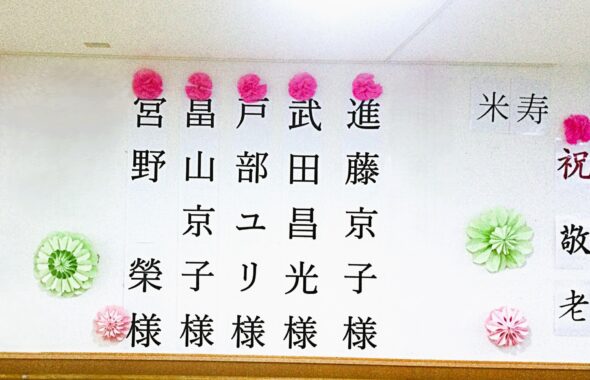 祝敬老
米寿
進藤京子様
武田昌光様
戸部ユリ様
畠山京子様
宮野 榮様